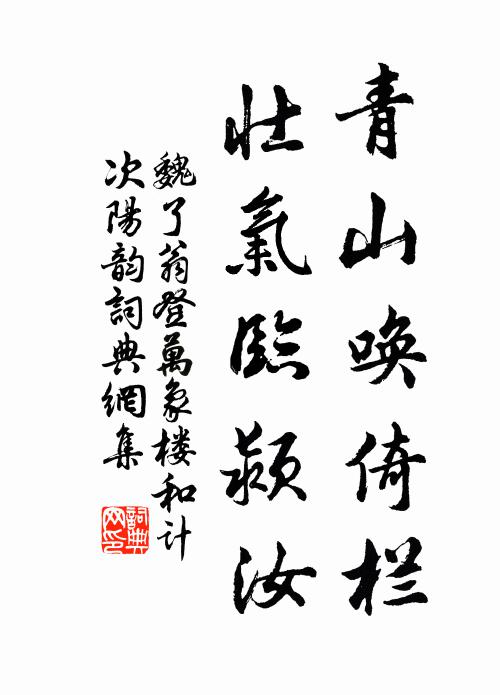 青山唤倚栏
壮氣臨颍汝
魏了翁登萬象楼和计
次陽韵詞典網集
詞典网印